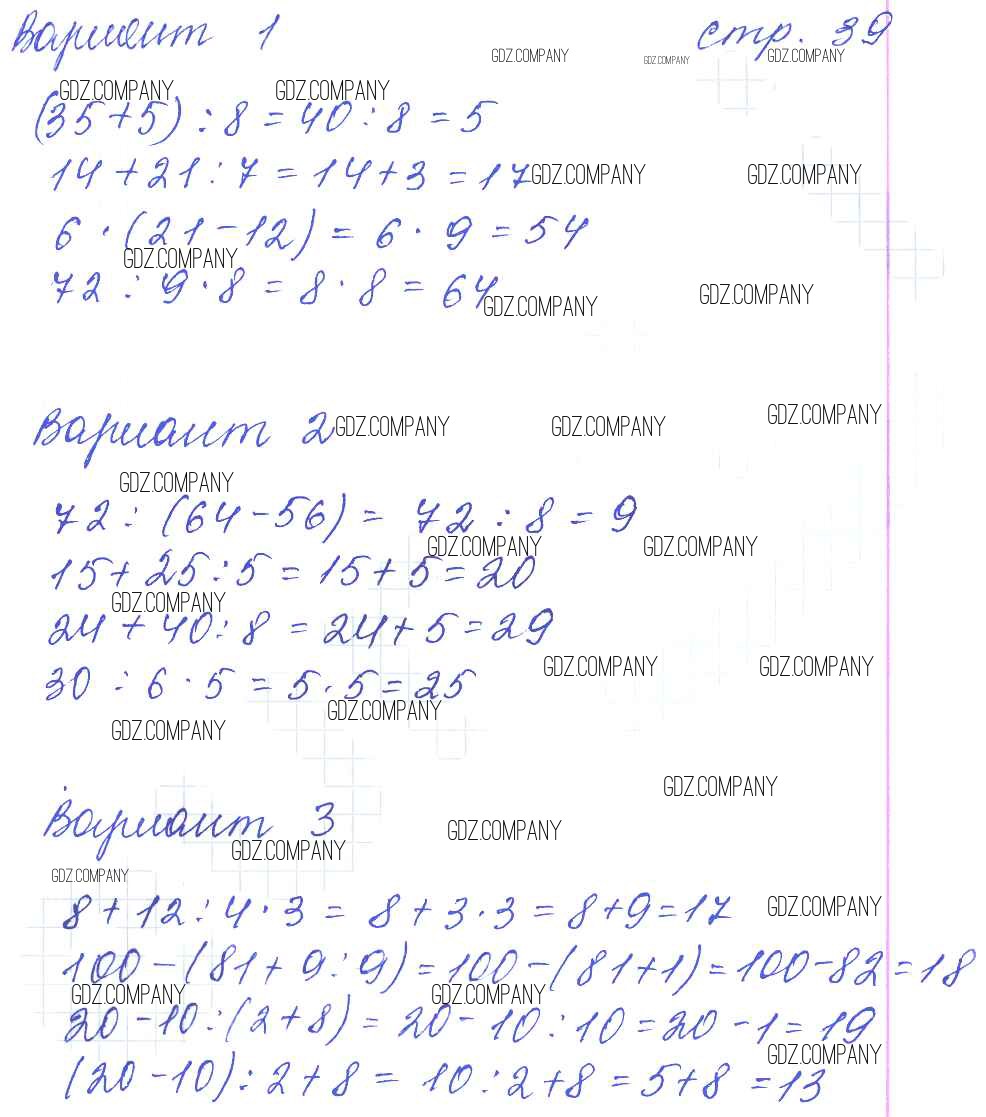 Вариант 1 стр. 39
GDZ.COMPANY GDZ.COMPANY GDZ.COMPANY
GDZ.COMPANY GDZ.COMPANY
(35+5) : 8 = 40 : 8 = 5
14 + 21 : 7 = 14 + 3 = 17 GDZ.COMPANY GDZ.COMPANY
6 · (21 - 12) = 6 · 9 = 54
GDZ.COMPANY
72 : 9 · 8 = 8 · 8 = 64
GDZ.COMPANY GDZ.COMPANY
Вариант 2 GDZ.COMPANY GDZ.COMPANY GDZ.COMPANY
GDZ.COMPANY
72 : (64 - 56) = 72 : 8 = 9
GDZ.COMPANY GDZ.COMPANY
15 + 25 : 5 = 15 + 5 = 20
GDZ.COMPANY
24 + 40 : 8 = 24 + 5 = 29
GDZ.COMPANY GDZ.COMPANY
30 : 6 · 5 = 5 · 5 = 25
GDZ.COMPANY
GDZ.COMPANY
GDZ.COMPANY
Вариант 3 GDZ.COMPANY
GDZ.COMPANY
GDZ.COMPANY
8 + 12 : 4 · 3 = 8 + 3 · 3 = 8 + 9 = 17 GDZ.COMPANY
100 - (81 + 9 : 9) = 100 - (81 + 1) = 100 - 82 = 18
GDZ.COMPANY GDZ.COMPANY
20 - 10 : (2 + 8) = 20 - 10 : 10 = 20 - 1 = 19
GDZ.COMPANY
(20 - 10) : 2 + 8 = 10 : 2 + 8 = 5 + 8 = 13